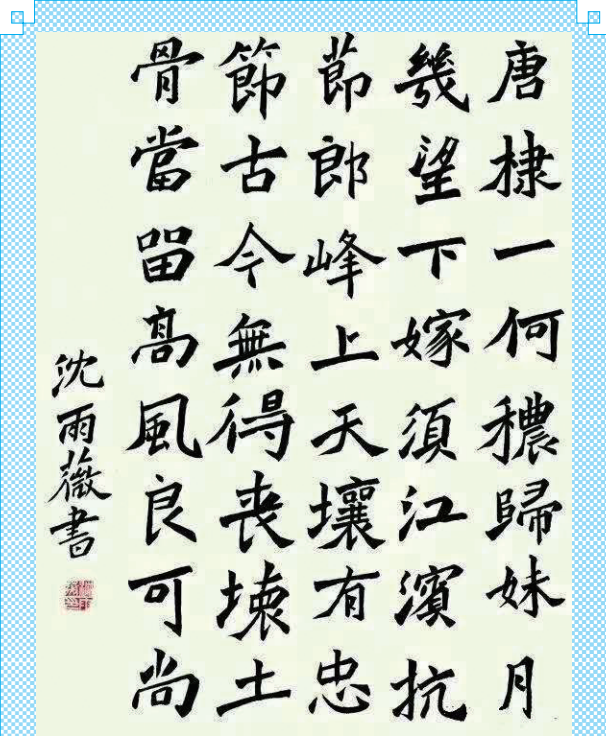 唐棣一何穠歸妹月
幾望下嫁須江濱抗
節郎峰上天壤有忠
節古今無得喪壊土
骨當留高風良可尚
沈雨薇書